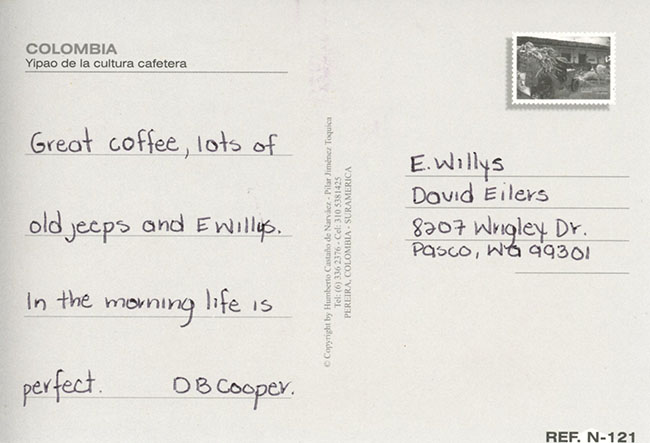 COLOMBIA
Yipao de la cultura cafetera
Great coffee, lots of
old jeeps and EWillys.
In the morning life is
perfect. DBCooper.
© Copyright by Humberto Castaño de Narváez - Pilar Jiménez Toquica
Tel: (6) 336 2376 - Cel: 310 5381425
PEREIRA, COLOMBIA - SURAMERICA
E. Willys
David Eilers
8207 Wrigley Dr.
Pasco, WA 99301
REF. N-121